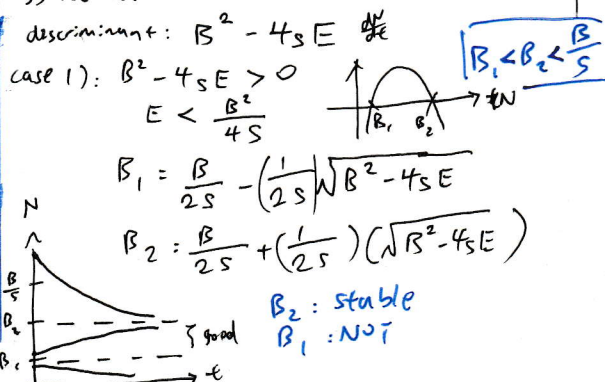 descriminant: B² - 4sE dN/dt
B₁ < B₂ < B/S
case 1): B² - 4sE > 0
E < B²/4S
B₁ B₂ N
B₁ = B/2S - (1/2S)√B² - 4sE
B₂ = B/2S + (1/2S)(√B² - 4sE)
N
B/S
B₂
B₁
good
t
B₂ : stable
B₁ : NOT